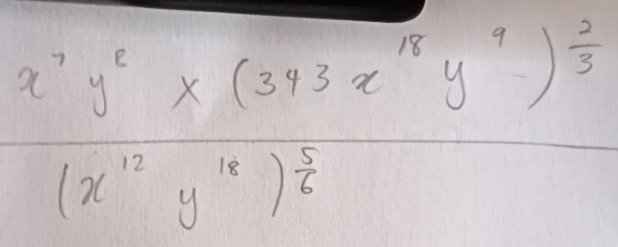 x⁷ y⁸ × (343 x¹⁸ y⁹)^(2/3)
(x¹² y¹⁸)^(5/6)